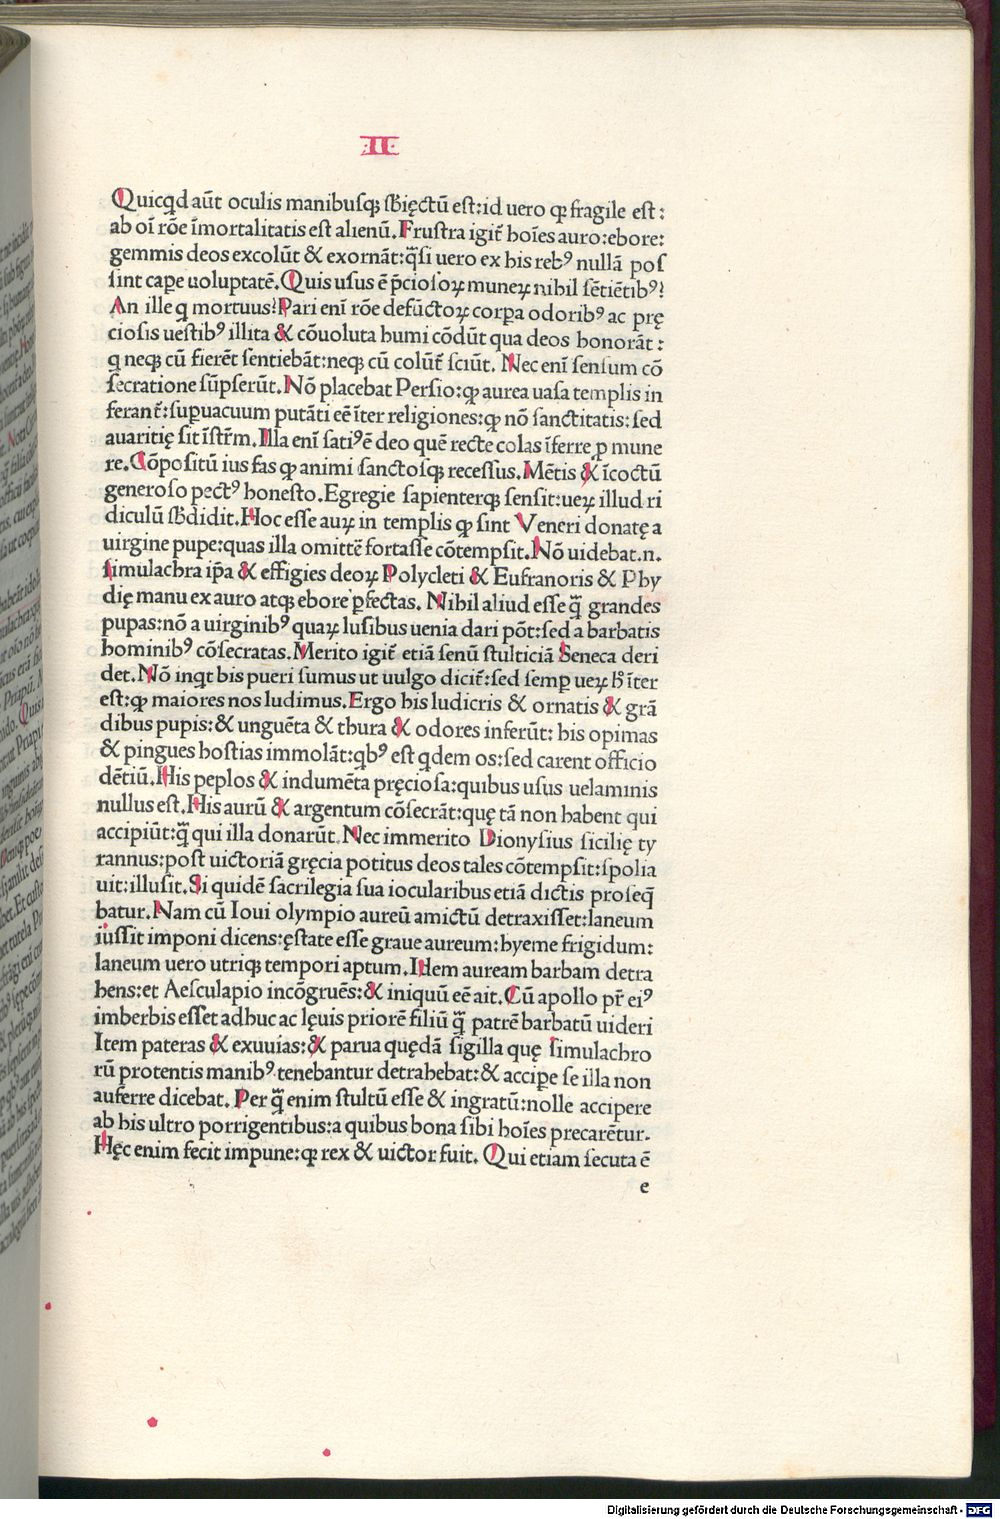 II
Quicq̣d aūt oculis manibusqꝫ sb̄iectū est: id uero ꝙ fragile est:
ab oī rōe īmortalitatis est alienū. Frustra igit̄ hoīes auro: ebore:
gemmis deos excolūt & exornāt: q̄si uero ex his rebꝰ nullā pos
sint caꝑe uoluptatē. Quis usus ē p̄ciosoꝝ muneꝝ nihil sētiētibꝰ?
An ille q mortuus? Pari enī rōe defūctoꝝ corꝑa odoribꝰ ac prę
ciosis uestibꝰ illita & cōuoluta humi cōdūt qua deos honorāt:
q neqꝫ cū fierēt sentiebāt: neqꝫ cū colūt̄ sciūt. Nec enī sensum cō
secratione sūpserūt. Nō placebat Persio: ꝙ aurea uasa templis in
ferant̄: suꝑuacuum putāti eē īter religiones: ꝙ nō sanctitatis: sed
auaritię sit īstr̄m. Illa enī satiꝰ ē deo quē recte colas īferre ꝓ mune
re. Cōpositū ius fas ꝙ animi sanctosqꝫ recessus. Mētis & īcoctū
generoso pectꝰ honesto. Egregie sapienterqꝫ sensit: ueꝝ illud ri
diculū sb̄didit. Hoc esse auꝝ in templis ꝙ sint Veneri donatę a
uirgine pupe: quas illa omittē fortasse cōtempsit. Nō uidebat .n.
simulachra ip̄a & effigies deoꝝ Polycleti & Eufranoris & Phy
dię manu ex auro atqꝫ ebore ꝑfectas. Nihil aliud esse q̄̄ grandes
pupas: nō a uirginibꝰ quaꝝ lusibus uenia dari pōt: sed a barbatis
hominibꝰ cōsecratas. Merito igit̄ etiā senū stulticiā Seneca deri
det. Nō inqt bis pueri sumus ut uulgo dicit̄: sed semꝑ ueꝝ h̄ īter
est: ꝙ maiores nos ludimus. Ergo his ludicris & ornatis & grā
dibus pupis: & unguēta & thura & odores inferūt: his opimas
& pingues hostias immolāt: qbꝰ est qdem os: sed carent officio
dētiū. His peplos & indumēta pręciosa: quibus usus uelaminis
nullus est. His aurū & argentum cōsecrāt: quę tā non habent qui
accipiūt: q̄̄ qui illa donarūt. Nec immerito Dionysius sicilię ty
rannus: post uictoriā gręcia potitus deos tales cōtempsit: spolia
uit: illusit. Si quidē sacrilegia sua iocularibus etiā dictis proseq̄
batur. Nam cū Ioui olympio aureū amictū detraxisset: laneum
iussit imponi dicens: ęstate esse graue aureum: hyeme frigidum:
laneum uero utriqꝫ tempori aptum. Idem auream barbam detra
hens: et Aesculapio incōgruēs: & iniquū eē ait. Cū apollo pr̄ eiꝰ
imberbis esset adhuc ac lęuis priorē filiū q̄̄ patrē barbatū uideri
Item pateras & exuuias: & parua quędā sigilla quę simulachro
rū protentis manibꝰ tenebantur detrahebat: & acciꝑe se illa non
auferre dicebat. Per q̄̄ enim stultū esse & ingratū: nolle accipere
ab his ultro porrigentibus: a quibus bona sibi hoīes precarētur.
Hęc enim fecit impune: ꝙ rex & uictor fuit. Qui etiam secuta ē
e
Digitalisierung gefördert durch die Deutsche Forschungsgemeinschaft - DFG